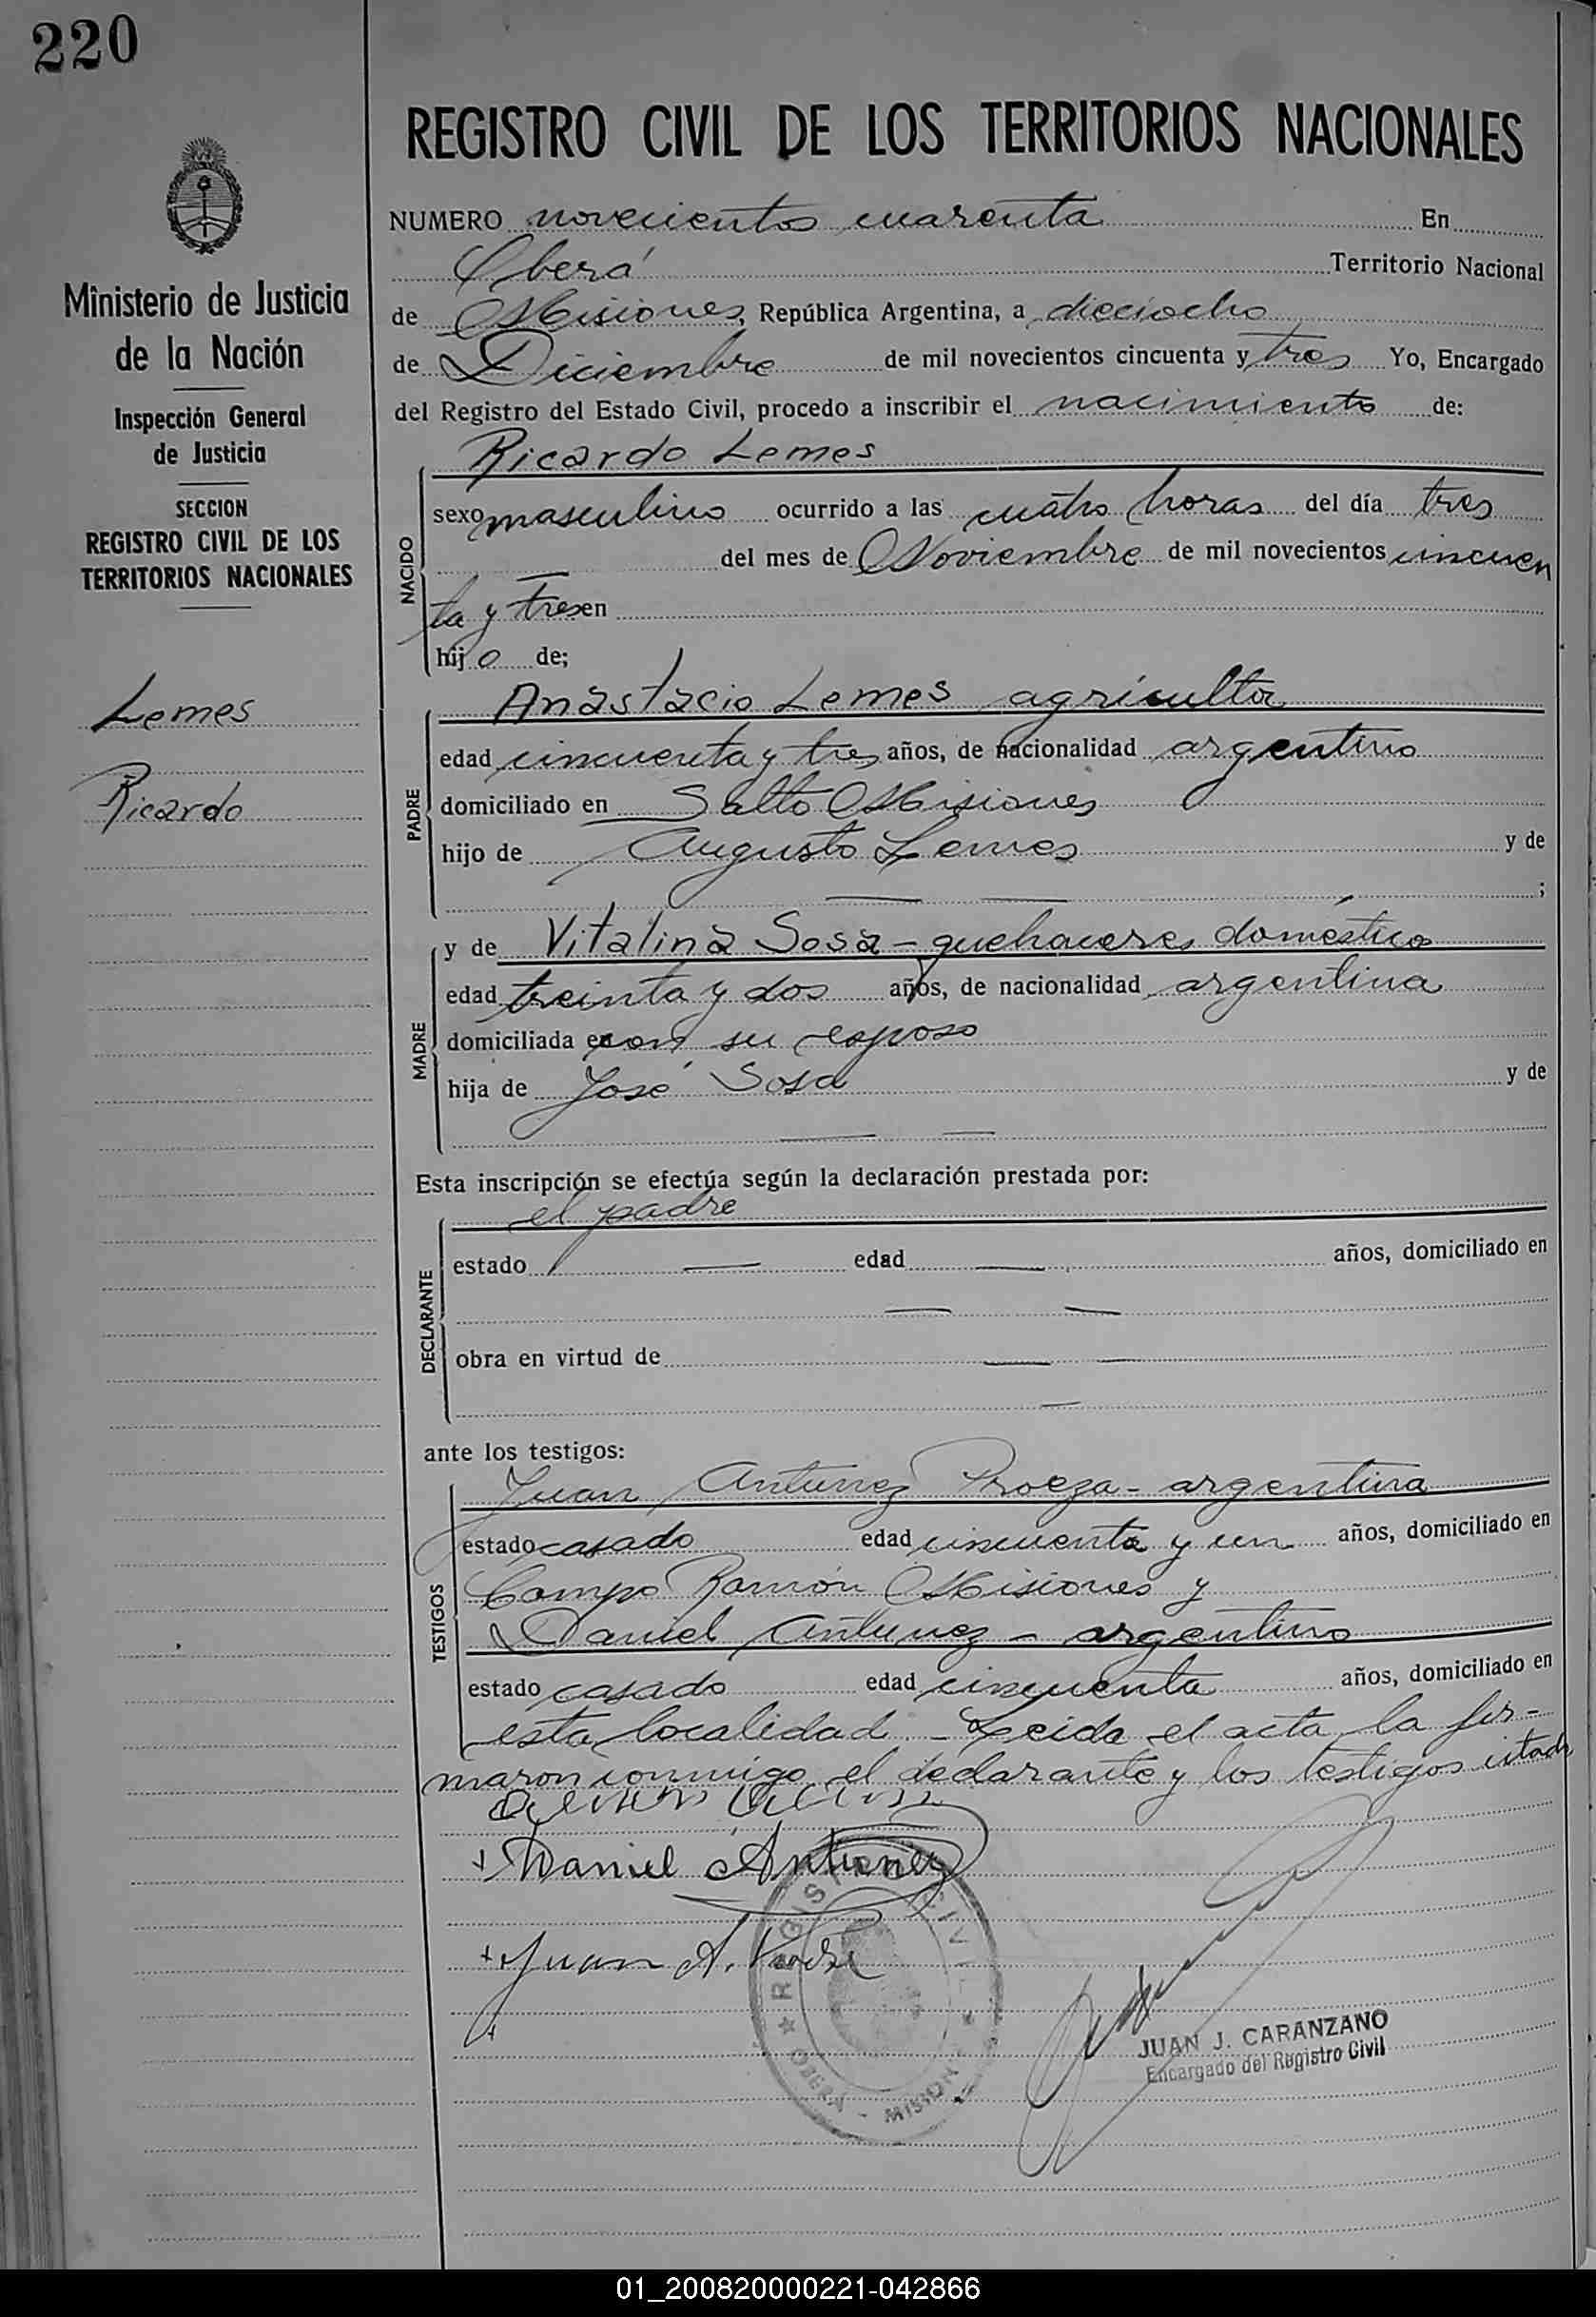 220
Ministerio de Justicia
de la Nación
Inspección General
de Justicia
SECCION
REGISTRO CIVIL DE LOS
TERRITORIOS NACIONALES
Lemes
Ricardo
REGISTRO CIVIL DE LOS TERRITORIOS NACIONALES
NUMERO novecientos cuarenta En
Oberá Territorio Nacional
de Misiones, República Argentina, a dieciocho
de Diciembre de mil novecientos cincuenta y tres Yo, Encargado
del Registro del Estado Civil, procedo a inscribir el nacimiento de:
Ricardo Lemes
NACIDO
sexo masculino ocurrido a las cuatro horas del día tres
— del mes de Noviembre de mil novecientos cincuen
ta y tres en
hijo de;
Anastacio Lemes agricultor
PADRE
edad cincuenta y tres años, de nacionalidad argentino
domiciliado en Salto Misiones
hijo de Augusto Lemes y de
— — ;
y de Vitalina Sosa - quehaceres domésticos
MADRE
edad treinta y dos años, de nacionalidad argentina
domiciliada en con su esposo
hija de José Sosa y de
— —
Esta inscripción se efectúa según la declaración prestada por:
el padre
DECLARANTE
estado — edad — años, domiciliado en
— —
obra en virtud de — —
—
ante los testigos:
Juan Antunez Proeza - argentina
TESTIGOS
estado casado edad cincuenta y un años, domiciliado en
Campo Ramón Misiones y
Daniel Antunez - argentino
estado casado edad cincuenta años, domiciliado en
esta localidad - Leida el acta la fir-
maron conmigo el declarante y los testigos citads
+ Daniel Antunez
+ Juan A.
+
REGISTRO CIVIL
OBERA - MISIONES
JUAN J. CARANZANO
Encargado del Registro Civil
01_200820000221-042866